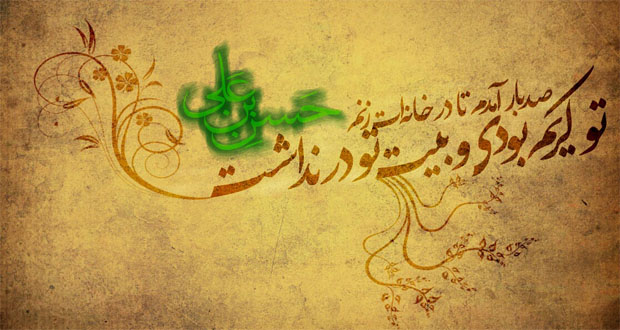 صد بار آمدم تا در خانه‌ات زنم
تو کریم بودی و بیت تو در نداشت
حسن بن علی